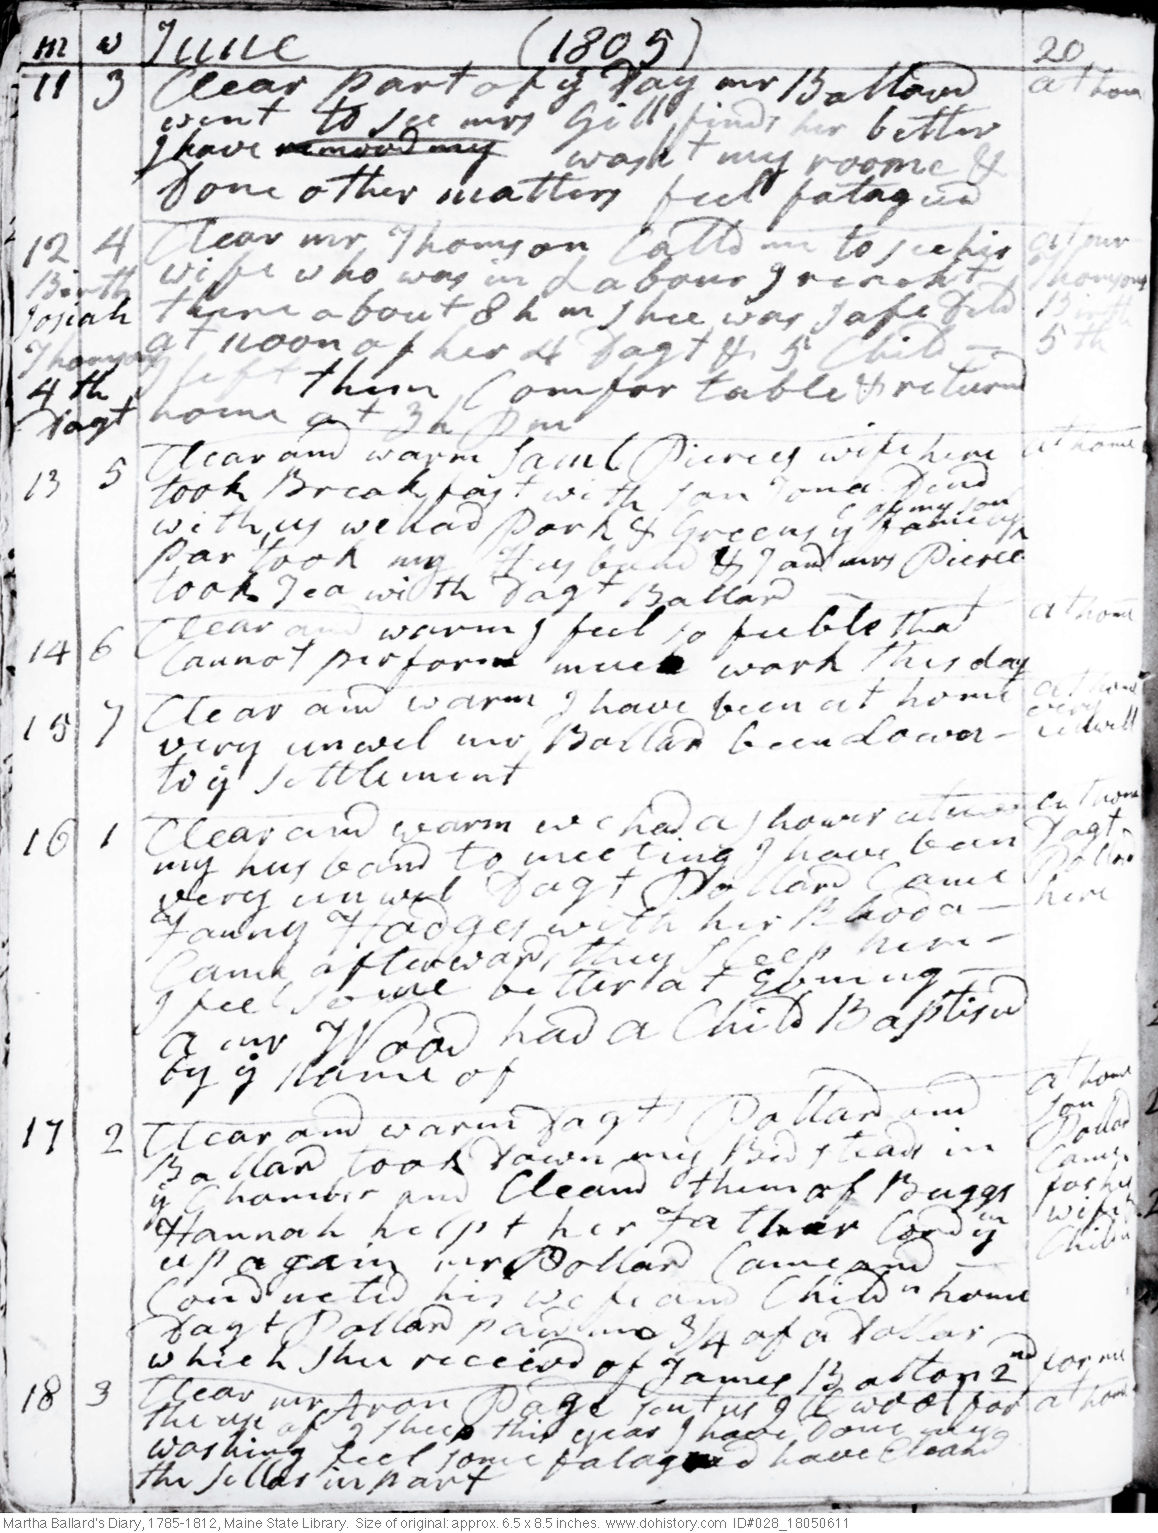 m w June (1805) 20
11 3 Clear part of ÿ Day mr Ballard at hom
went to see mrs Gill finds her better
I have remoovd my washt my roome &
Done other matters feel fatagued
12 4 Clear mr Thomson Calld me to see his at mr
Birth wife who was in Labour I reacht Thomsons
Josiah there about 8 h m Shee was safe Deld Birth
Thomsons at noon of her 4 Dagt & 5 Child – 5th
4th I left them Comfortable & returnd
Dagt home at 3 h Pm
13 5 Clear and warm Saml Pierces wife here at home
took Breakfast with son Jona Dind
with us we had Pork & Greens ÿ of my son famelys
partook my Husband & I and mrs Pierce
took Tea with Dagt Ballard –
14 6 Clear and warm I feel so feeble that at home
Cannot perform much work this day
15 7 Clear and warm I have been at home at home
very unwel mr Ballard been down – very
to ÿ settlement unwell
16 1 Clear and warm we had a shower at home
my husband to meeting I have been Dagt
very unwel Dagt Pollard Came Pollard
Fanny Hadges with her Rhoda – here
Came afterwards they sleep here –
I feel some better at Evning –
a mr Wood had a Child Baptisd
by ÿ name of
17 2 Clear and warm Dagts Pollard and at home
Ballard took Down my Bed steads in son Pollard
ÿ Chamber and Cleand them of Buggs Came
Hannah helpt her Father Cord ym for his
up again mr Pollard Came and – wife
Conducted his wife and Childn home Childn
Dagt Pollard paid me 3/4 of a Dollar
which shee receivd of James Bolton 2nd for me
18 3 Clear mr Aron Page sent us 9 lb wool for at home
the use of 9 sheep this year I have Done my
washing feel some fatagued have Cleand
the sellar in part
Martha Ballard's Diary, 1785-1812, Maine State Library. Size of original: approx. 6.5 x 8.5 inches. www.dohistory.com ID#028_18050611